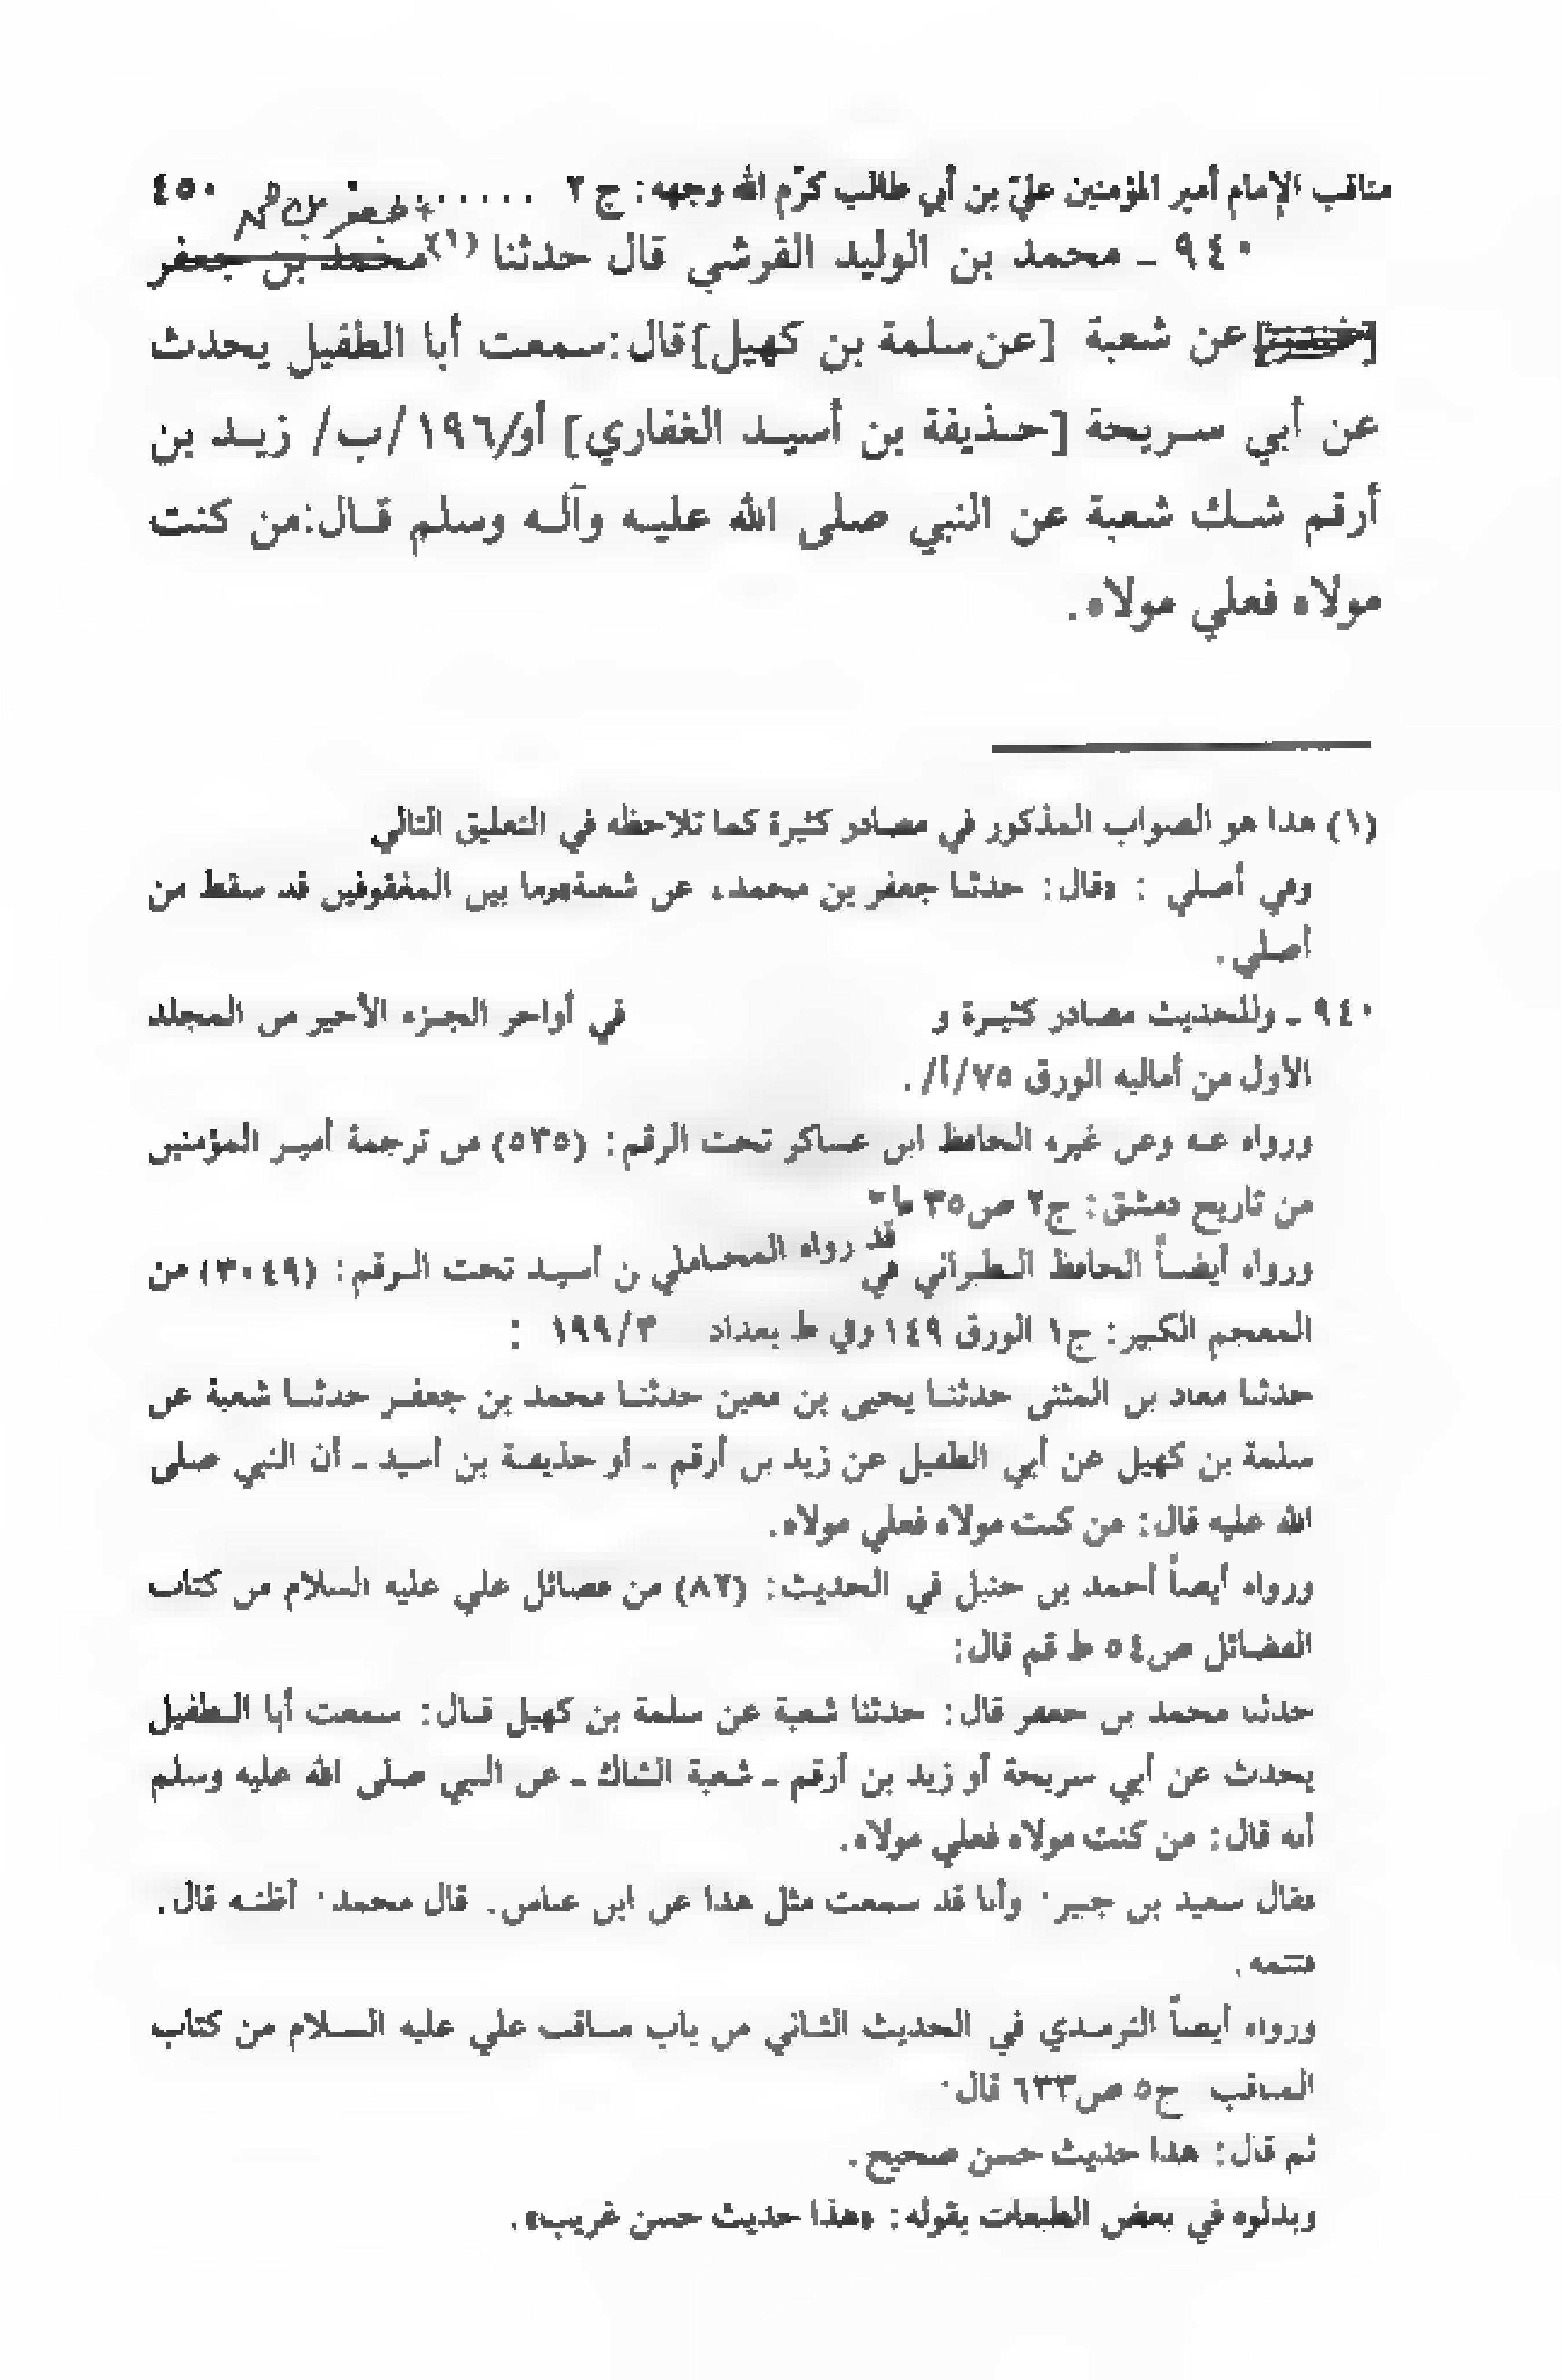 مناقب الإمام أمير المؤمنين عليّ بن أبي طالب كرّم الله وجهه: ج ٢ ....... ٤٥٠
جعفر بن محمد
٩٤٠ ـ محمد بن الوليد القرشي قال حدثنا (١) محمد بن جعفر
عن شعبة [عن سلمة بن كهيل] قال: سمعت أبا الطفيل يحدث
عن أبي سريحة [حذيفة بن أسيد الغفاري] أو /١٩٦/ب/ زيد بن
أرقم شك شعبة عن النبي صلى الله عليه وآله وسلم قال: من كنت
مولاه فعلي مولاه.
(١) هذا هو الصواب المذكور في مصادر كثيرة كما تلاحظه في التعليق التالي
وفي أصلي : «قال: حدثنا جعفر بن محمد، عن شعبة» وما بين المعقوفين قد سقط من
أصلي.
٩٤٠ ـ وللحديث مصادر كثيرة و في أواخر الجزء الأخير من المجلد
الأول من أماليه الورق ٧٥/أ/ .
ورواه عنه وعن غيره الحافظ ابن عساكر تحت الرقم: (٥٣٥) من ترجمة أمير المؤمنين
من تاريخ دمشق: ج٢ ص٣٥ ط٢
قد رواه المحاملي
ورواه أيضاً الحافظ الطبراني في ن أسيد تحت الرقم: (٣٠٤٩) من
المعجم الكبير: ج١ الورق ١٤٩ وفي ط بغداد ١٩٩/٣ :
حدثنا معاذ بن المثنى حدثنا يحيى بن معين حدثنا محمد بن جعفر حدثنا شعبة عن
سلمة بن كهيل عن أبي الطفيل عن زيد بن أرقم ـ أو حذيفة بن أسيد ـ أن النبي صلى
الله عليه قال: من كنت مولاه فعلي مولاه.
ورواه أيضاً أحمد بن حنبل في الحديث: (٨٢) من فضائل علي عليه السلام من كتاب
الفضائل ص٥٤ ط قم قال:
حدثنا محمد بن جعفر قال: حدثنا شعبة عن سلمة بن كهيل قال: سمعت أبا الطفيل
يحدث عن أبي سريحة أو زيد بن أرقم ـ شعبة الشاك ـ عن النبي صلى الله عليه وسلم
أنه قال: من كنت مولاه فعلي مولاه.
فقال سعيد بن جبير: وأنا قد سمعت مثل هذا عن ابن عباس. قال محمد: أظنه قال.
فكتمه.
ورواه أيضاً الترمذي في الحديث الثاني من باب مناقب علي عليه السلام من كتاب
المناقب ج٥ ص٦٣٣ قال:
ثم قال: هذا حديث حسن صحيح.
وبدلوه في بعض الطبعات بقوله: «هذا حديث حسن غريب».